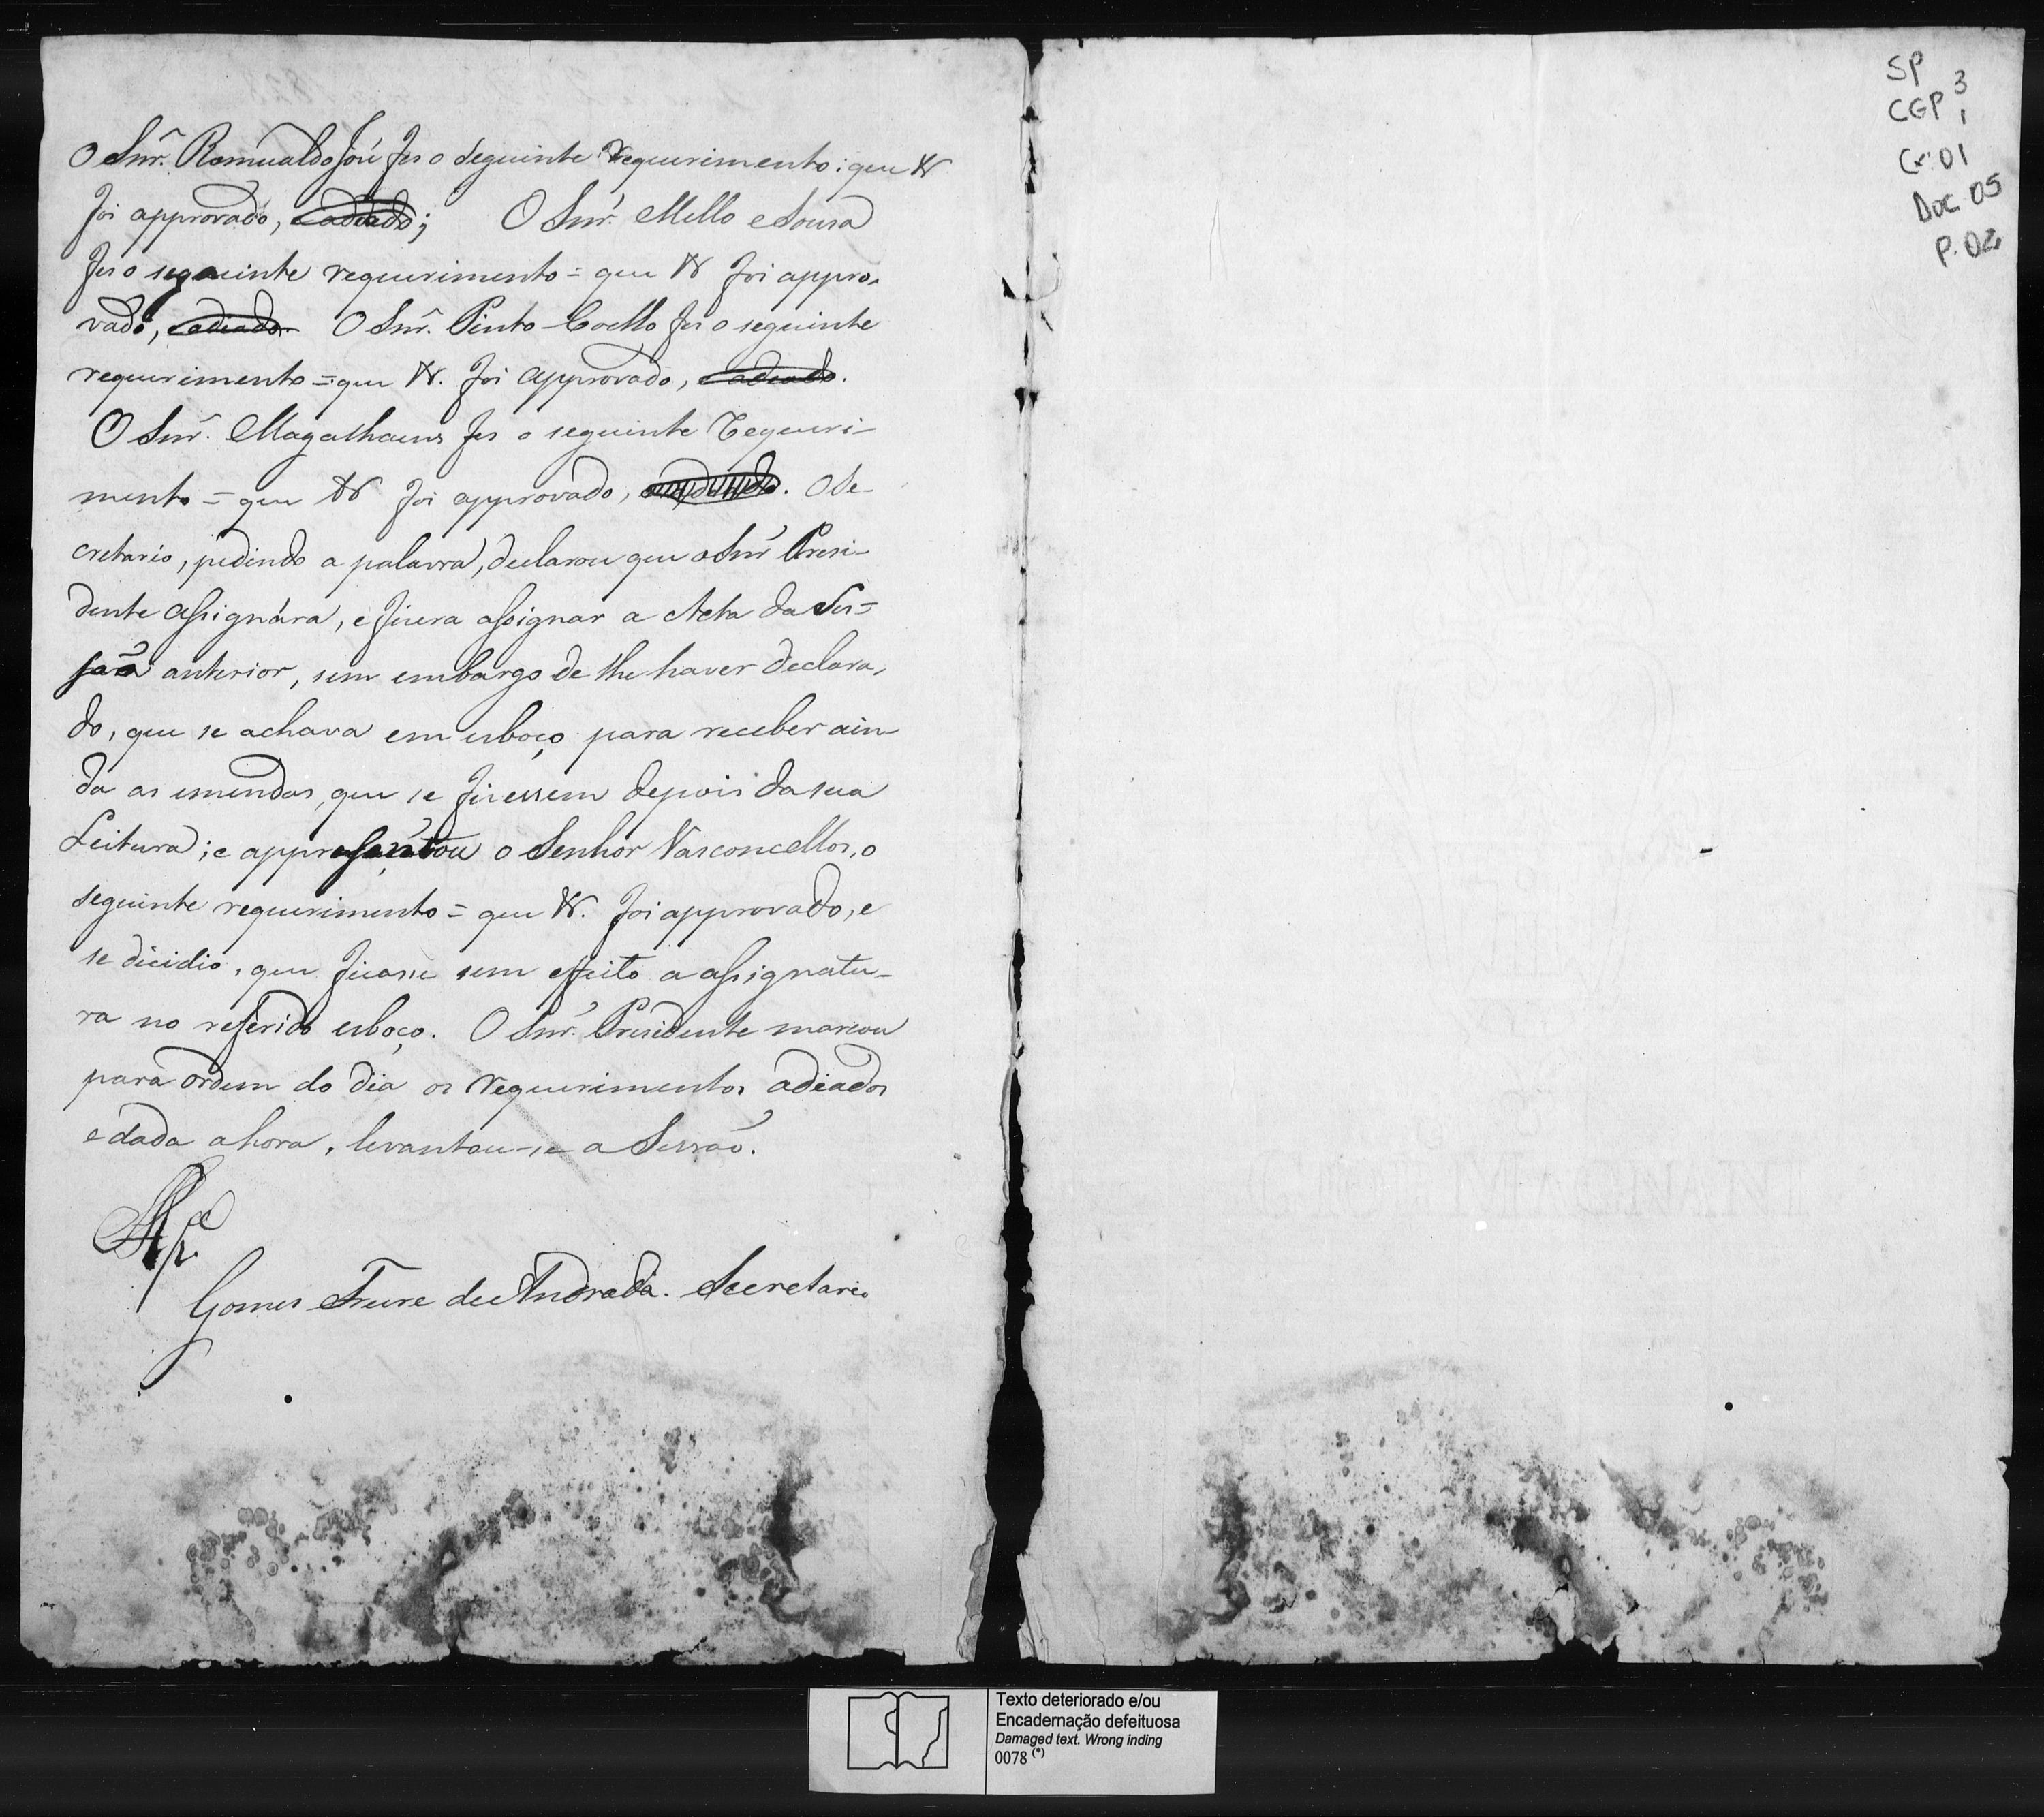 O Snr. Romualdo José fes o seguinte requerimento: que W
foi approvado, e adiado; O Snr. Mello e Sousa
fes o seguinte requerimento = que W foi appro-
vado, e adiado. O Snr. Pinto Coelho fes o seguinte
requerimento = que W. foi approvado, e adiado.
O Snr. Magalhaens fes o seguinte requeri-
mento = que W foi approvado, . O Se-
cretario, pedindo a palavra, declarou que o Snr Presi-
dente assignára, e fizera assignar a Acta da Ses-
saõ anterior, sem embargo de lhe haver declara-
do, que se achava em esboço para receber ain-
da as emendas, que se fizessem depois da sua
Leitura; e appresentou o Senhor Vasconcellos, o
seguinte requerimento = que W. foi approvado, e
se dicidio, que ficasse sem effeito a assignatu-
ra no referido esboço. O Snr. Presidente marcou
para ordem do dia os requerimentos adiados
e dada a hora, levantou-se a Sessaõ.
Gomes Freire de Andrada. Secretario
SP
CGP 3
1
Cx. 01
Doc 05
P. 02
Texto deteriorado e/ou
Encadernação defeituosa
Damaged text. Wrong inding
0078 (*)